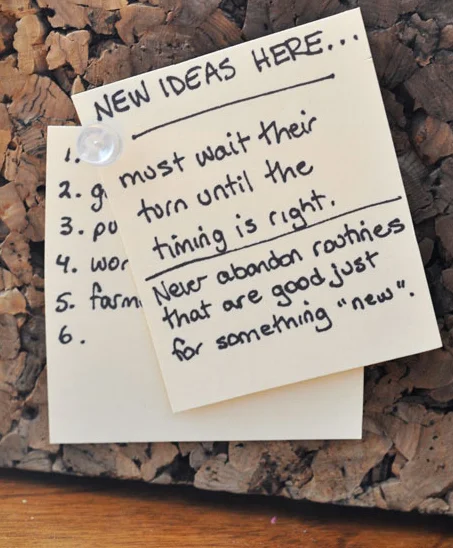 NEW IDEAS HERE...
must wait their
turn until the
timing is right.
Never abandon routines
that are good just
for something "new".
1.
2. g
3. pu
4. wor
5. farm
6.